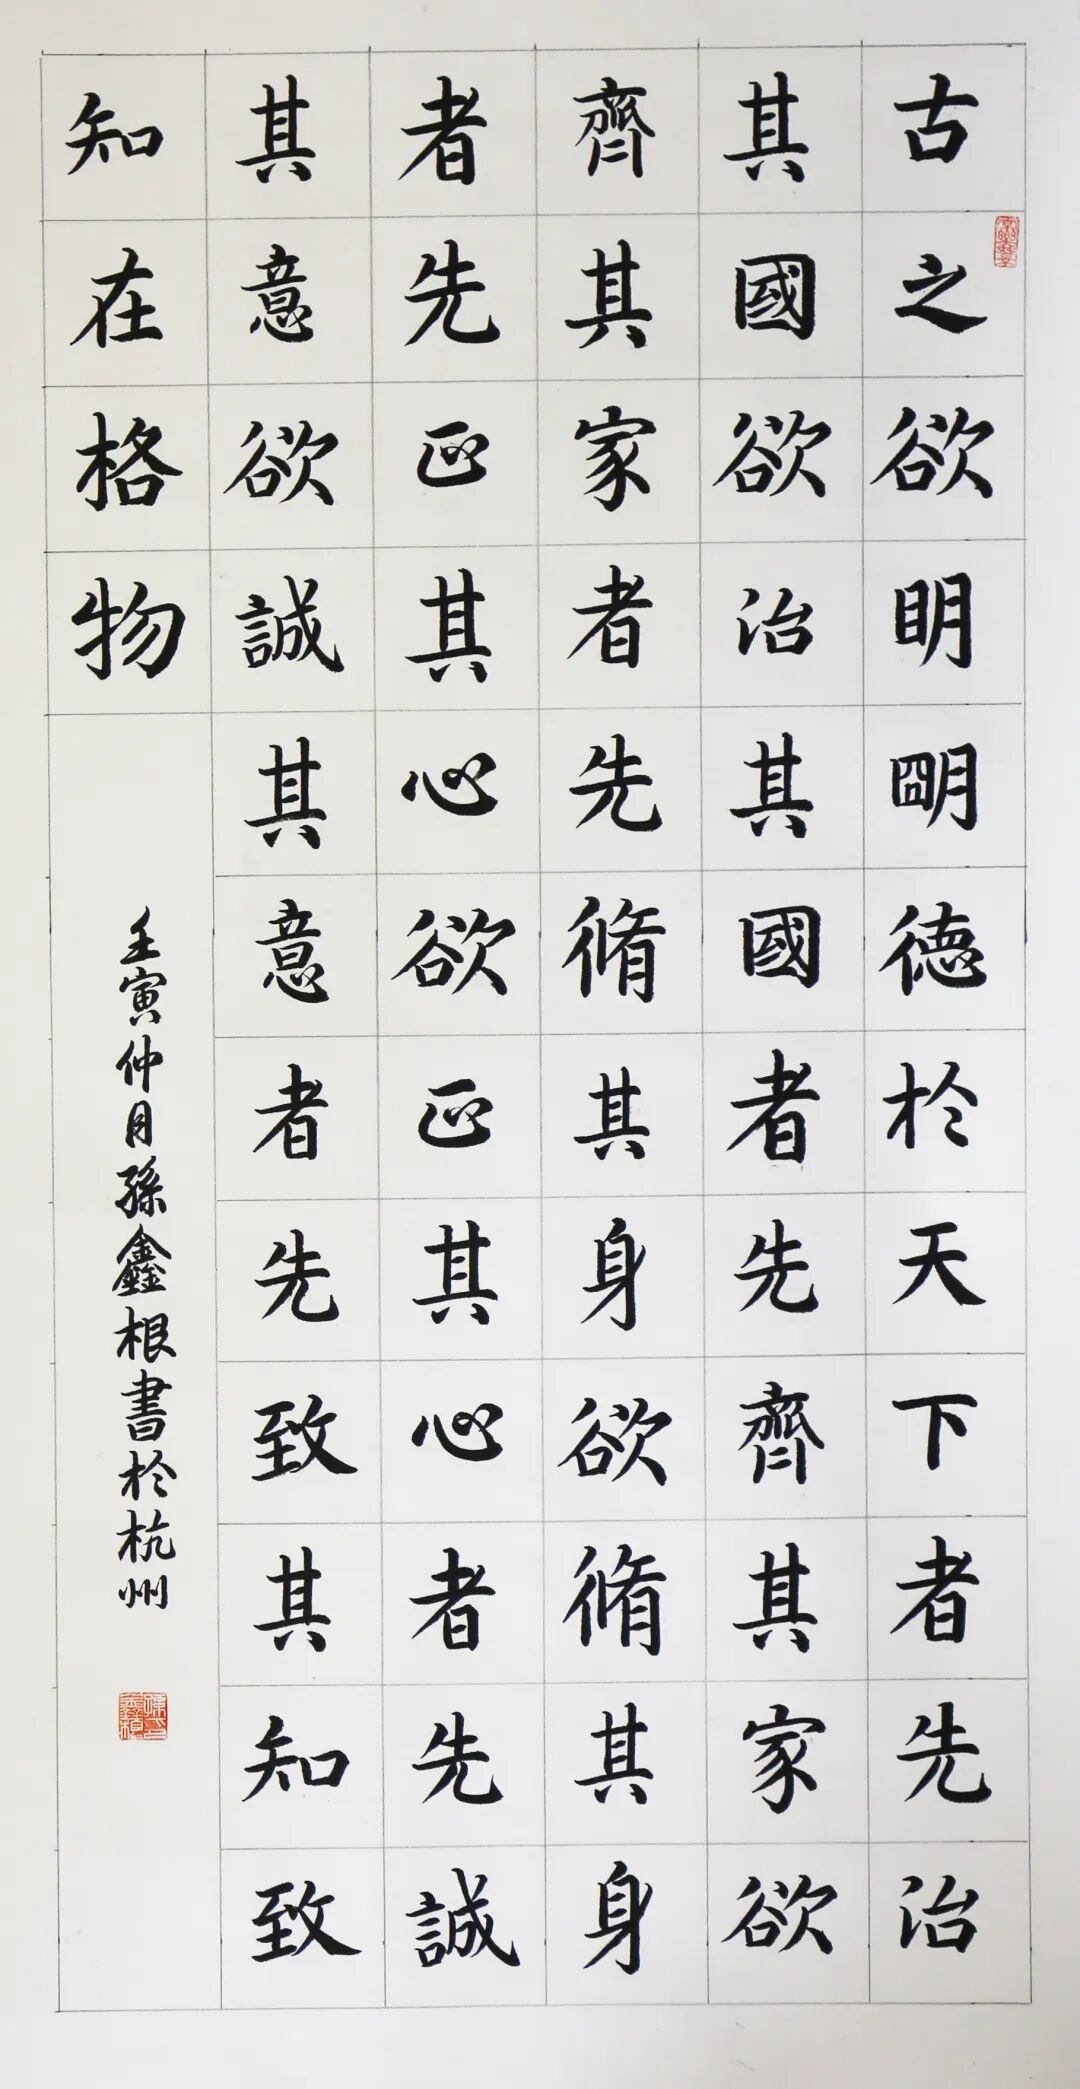 古之欲眀朙德於天下者先治
其國欲治其國者先齊其家欲
齊其家者先脩其身欲脩其身
者先正其心欲正其心者先誠
其意欲誠其意者先致其知致
知在格物
壬寅仲月孫鑫根書於杭州